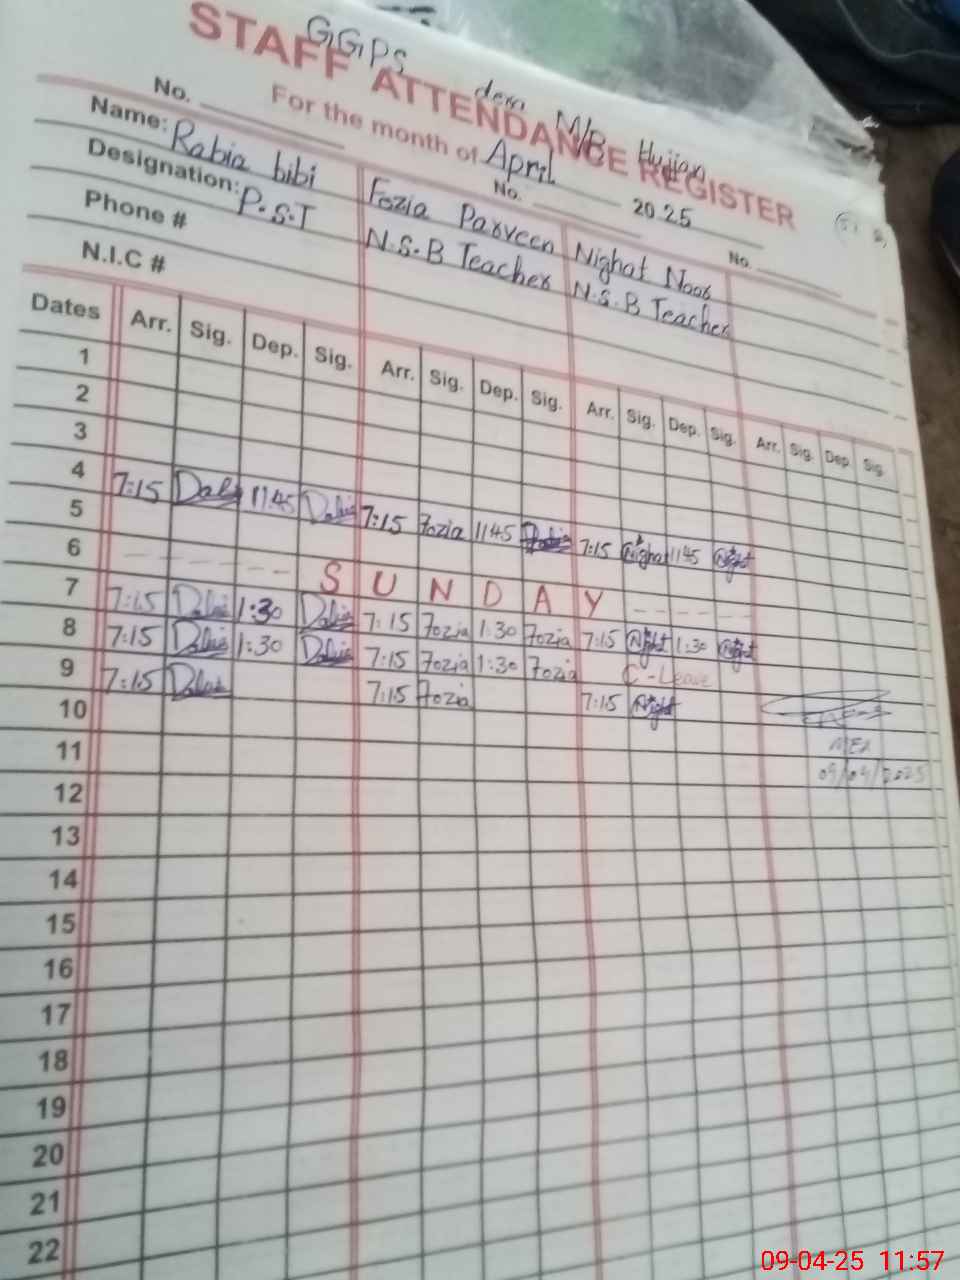 GGPS dera M/B Hujjan
STAFF ATTENDANCE REGISTER
For the month of April 2025
No. No. No.
Name: Rabia bibi Fozia Parveen Nighat Noor
Designation: P.S.T N.S.B Teacher N.S.B Teacher
Phone #
N.I.C #
Dates Arr. Sig. Dep. Sig. Arr. Sig. Dep. Sig. Arr. Sig. Dep. Sig. Arr. Sig. Dep. Sig.
1
2
3
4
5 7:15 11:45 7:15 Fozia 1145 7:15 1145
6 SUNDAY
7 7:15 1:30 7:15 Fozia 1:30 Fozia 7:15 1:30
8 7:15 1:30 7:15 Fozia 1:30 Fozia C-Leave
9 7:15 7:15 Fozia 7:15
10
11 MEA
12 09/04/2025
13
14
15
16
17
18
19
20
21
22
09-04-25 11:57